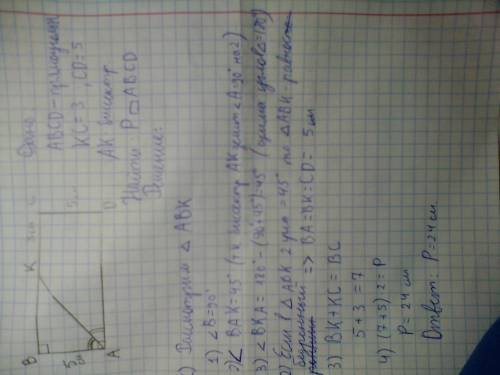 Дано:
ABCD - прямоугольн
KC = 3 , CD = 5
AK биссектр
Найти P▭ABCD
Решение:
B
K
3 см
C
5 см
5
A
D
1) Рассмотрим △ ABK
1) ∠B = 90°
2) ∠BAK = 45° (т.к биссектр AK делит ∠A = 90° на 2)
3) ∠BKA = 180° - (90° + 45°) = 45° (сумма углов △ = 180°)
2) Если в △ ABK 2 угл = 45° то △ABK - равноб
=> BA = BK = CD = 5 см
3) BK + KC = BC
5 + 3 = 7
4) (7+5)·2 = P
P = 24 см
Ответ: P = 24 см